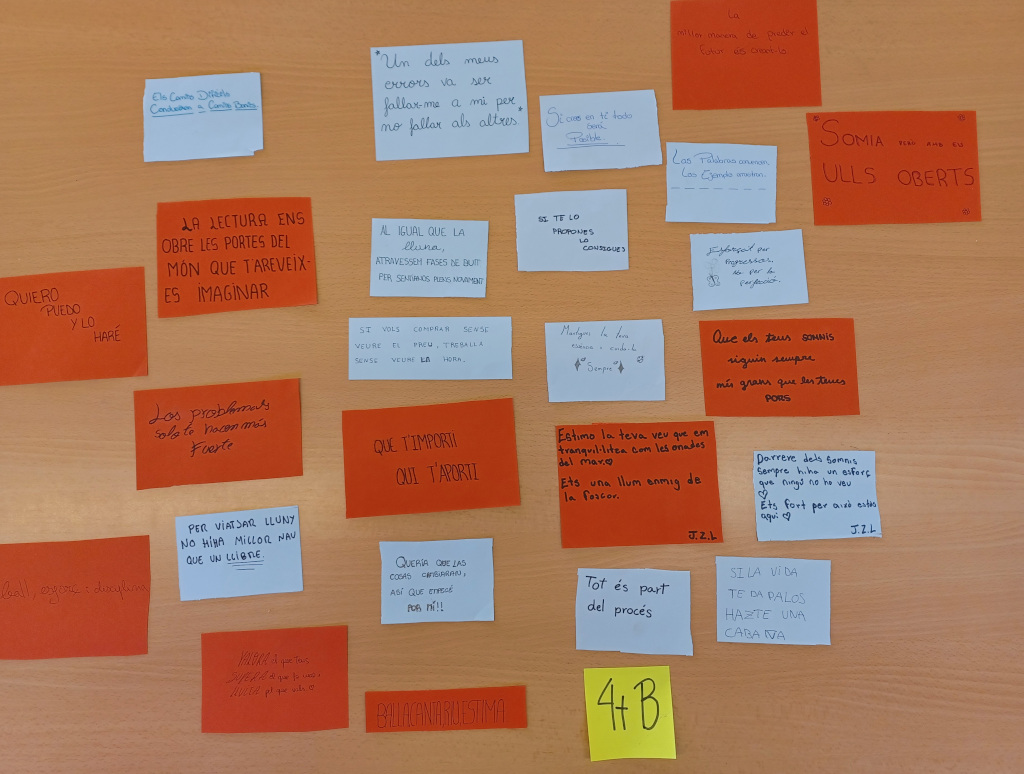 La
millor manera de predir el
futur és crear-lo
Els Camins Difícils
Condueixen a Camins Bonics
"Un dels meus
errors va ser
fallar-me a mi per
no fallar als altres"
Si crees en ti todo
será
Posible.
Las Palabras conmueven
Los Ejemplos arrastran.
SOMIA PERÒ AMB ELS
ULLS OBERTS
LA LECTURA ENS
OBRE LES PORTES DEL
MÓN QUE T'AREVEIX-
ES IMAGINAR
AL IGUAL QUE LA
lluna,
ATRAVESSEM FASES DE BUIT
PER SENTIRNOS PLENS NOVAMENT
SI TE LO
PROPONES
LO
CONSIGUES
Esforça't per
progressar,
no per la
perfecció.
QUIERO
PUEDO
Y LO
HARÉ
SI VOLS COMPRAR SENSE
VEURE EL PREU, TREBALLA
SENSE VEURE LA HORA.
Mantigues la teva
essència i cuida-la
Sempre
Que els teus SOMNIS
siguin sempre
més grans que les teves
PORS
Los problemas
solo te hacen más
fuerte
QUE T'IMPORTI
QUI T'APORTI
Estimo la teva veu que em
tranquil·litza com les onades
del mar♡
Ets una llum enmig de
la foscor.
J.Z.L
Darrere dels somnis
sempre hi ha un esforç
que ningú no ho veu
♡
Ets fort per això estàs
aquí ♡
J.Z.L
PER VIATJAR LLUNY
NO HIHA MILLOR NAU
QUE UN LLIBRE.
QUERÍA QUE LAS
COSAS CAMBIARAN,
ASÍ QUE EMPECÉ
POR MÍ!!
Tot és part
del procés
SI LA VIDA
TE DA PALOS
HAZTE UNA
CABAÑA
disciplina
VALORA el que tens
SUPERA el que
LLUITA pel que vols ♡
BALLA CANTA RIU ESTIMA
4t B